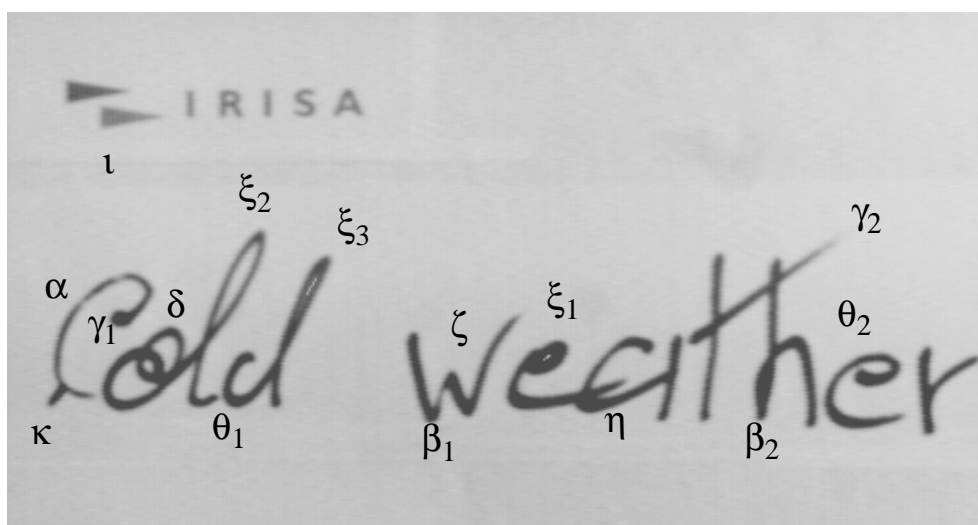 IRISA
ι
ξ₂
ξ₃
γ₂
α
γ₁
δ
ζ
ξ₁
θ₂
Cold weather
κ
θ₁
β₁
η
β₂